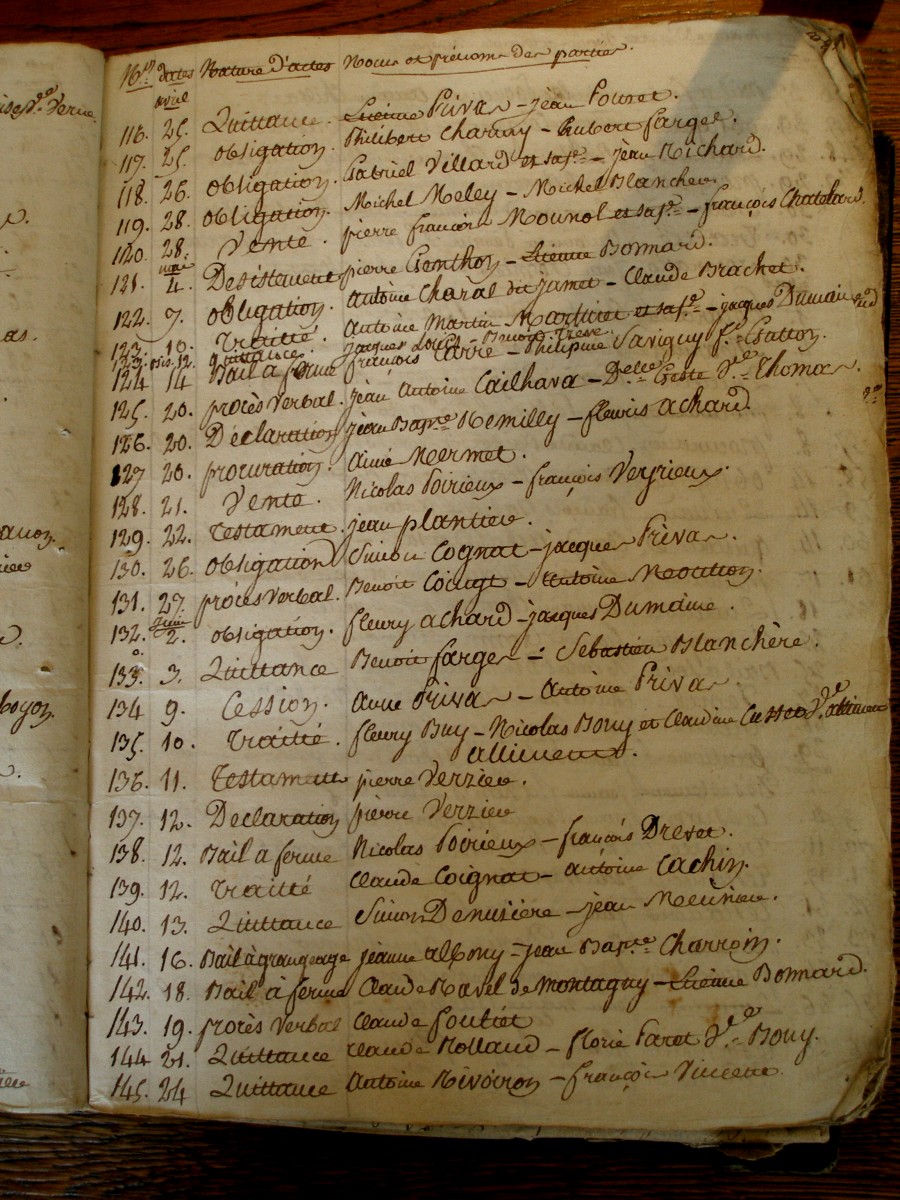 Nos dates Nature d'actes Noms et prénoms des parties.
avril
116. 25. Quittance. Etienne Privas - jean Pouret.
117. 25. obligation. Philibert Charmy - hubert fargee.
118. 26. obligation. Gabriel Villard et sa fe. - jean Richard.
119. 28. obligation. Michel Meley - Michel Blancheu.
120. 28. Vente. pierre françois Mounol et sa fe. - françois Chatelard.
mai
121. 4. Desistement pierre Gemthon - Etienne Bonnard.
122. 7. obligation. Antoine Charal dit jamet - Claude Brachet.
123. 10. traité. Antoine Martin Martinet et sa fe. - jacques Dumain
123. bis. 12. quittance. jacques - Benoit
124 14 Bail a ferme françois Carrie - Philipine Savigny fe. Gatton.
125. 20. procès verbal. jean Antoine Cailhava - Delle. Geste Ve. Thomas.
126. 20. Déclaration jean Bapte. Remilly - fleuris achard.
127 20. procuration. aimé Mermet.
128. 21. Vente. Nicolas Poirieux - françois Veyrieux.
129. 22. testament. jean plantieu.
130. 26. obligation Simon Cognat - jacques Privas.
131. 27. procès verbal. Benoit - Antoine
juin
132. 2. obligation. fleury achard - jacques Dumaine.
133. 3. Quittance Benoit farges - Sebastien Blanchère.
134 9. Cession. anne Privas - Antoine Privas.
135. 10. traité. fleury Buy - Nicolas Bouy et Claudine Cusset Ve.
allimens.
136. 11. testament pierre Verzieu.
137. 12. Declaration pierre Verzieu
138. 12. Bail a ferme Nicolas Poirieux - françois Drevet.
139. 12. traité Claude Coignat - antoine Cachin.
140. 13. Quittance Simon Denuziere - jean Meunieu.
141. 16. Bail à grangeage jeanne albouy - jean Bapte. Charroin.
142. 18. Bail à ferme Claude Ravel de Montagny - Etienne Bonnard.
143. 19. procès verbal Claude foutiet
144 21. Quittance Claude Rolland - florie Paret Ve. Bouy.
145. 24 Quittance Antoine Rivoiron - françois Vincent.